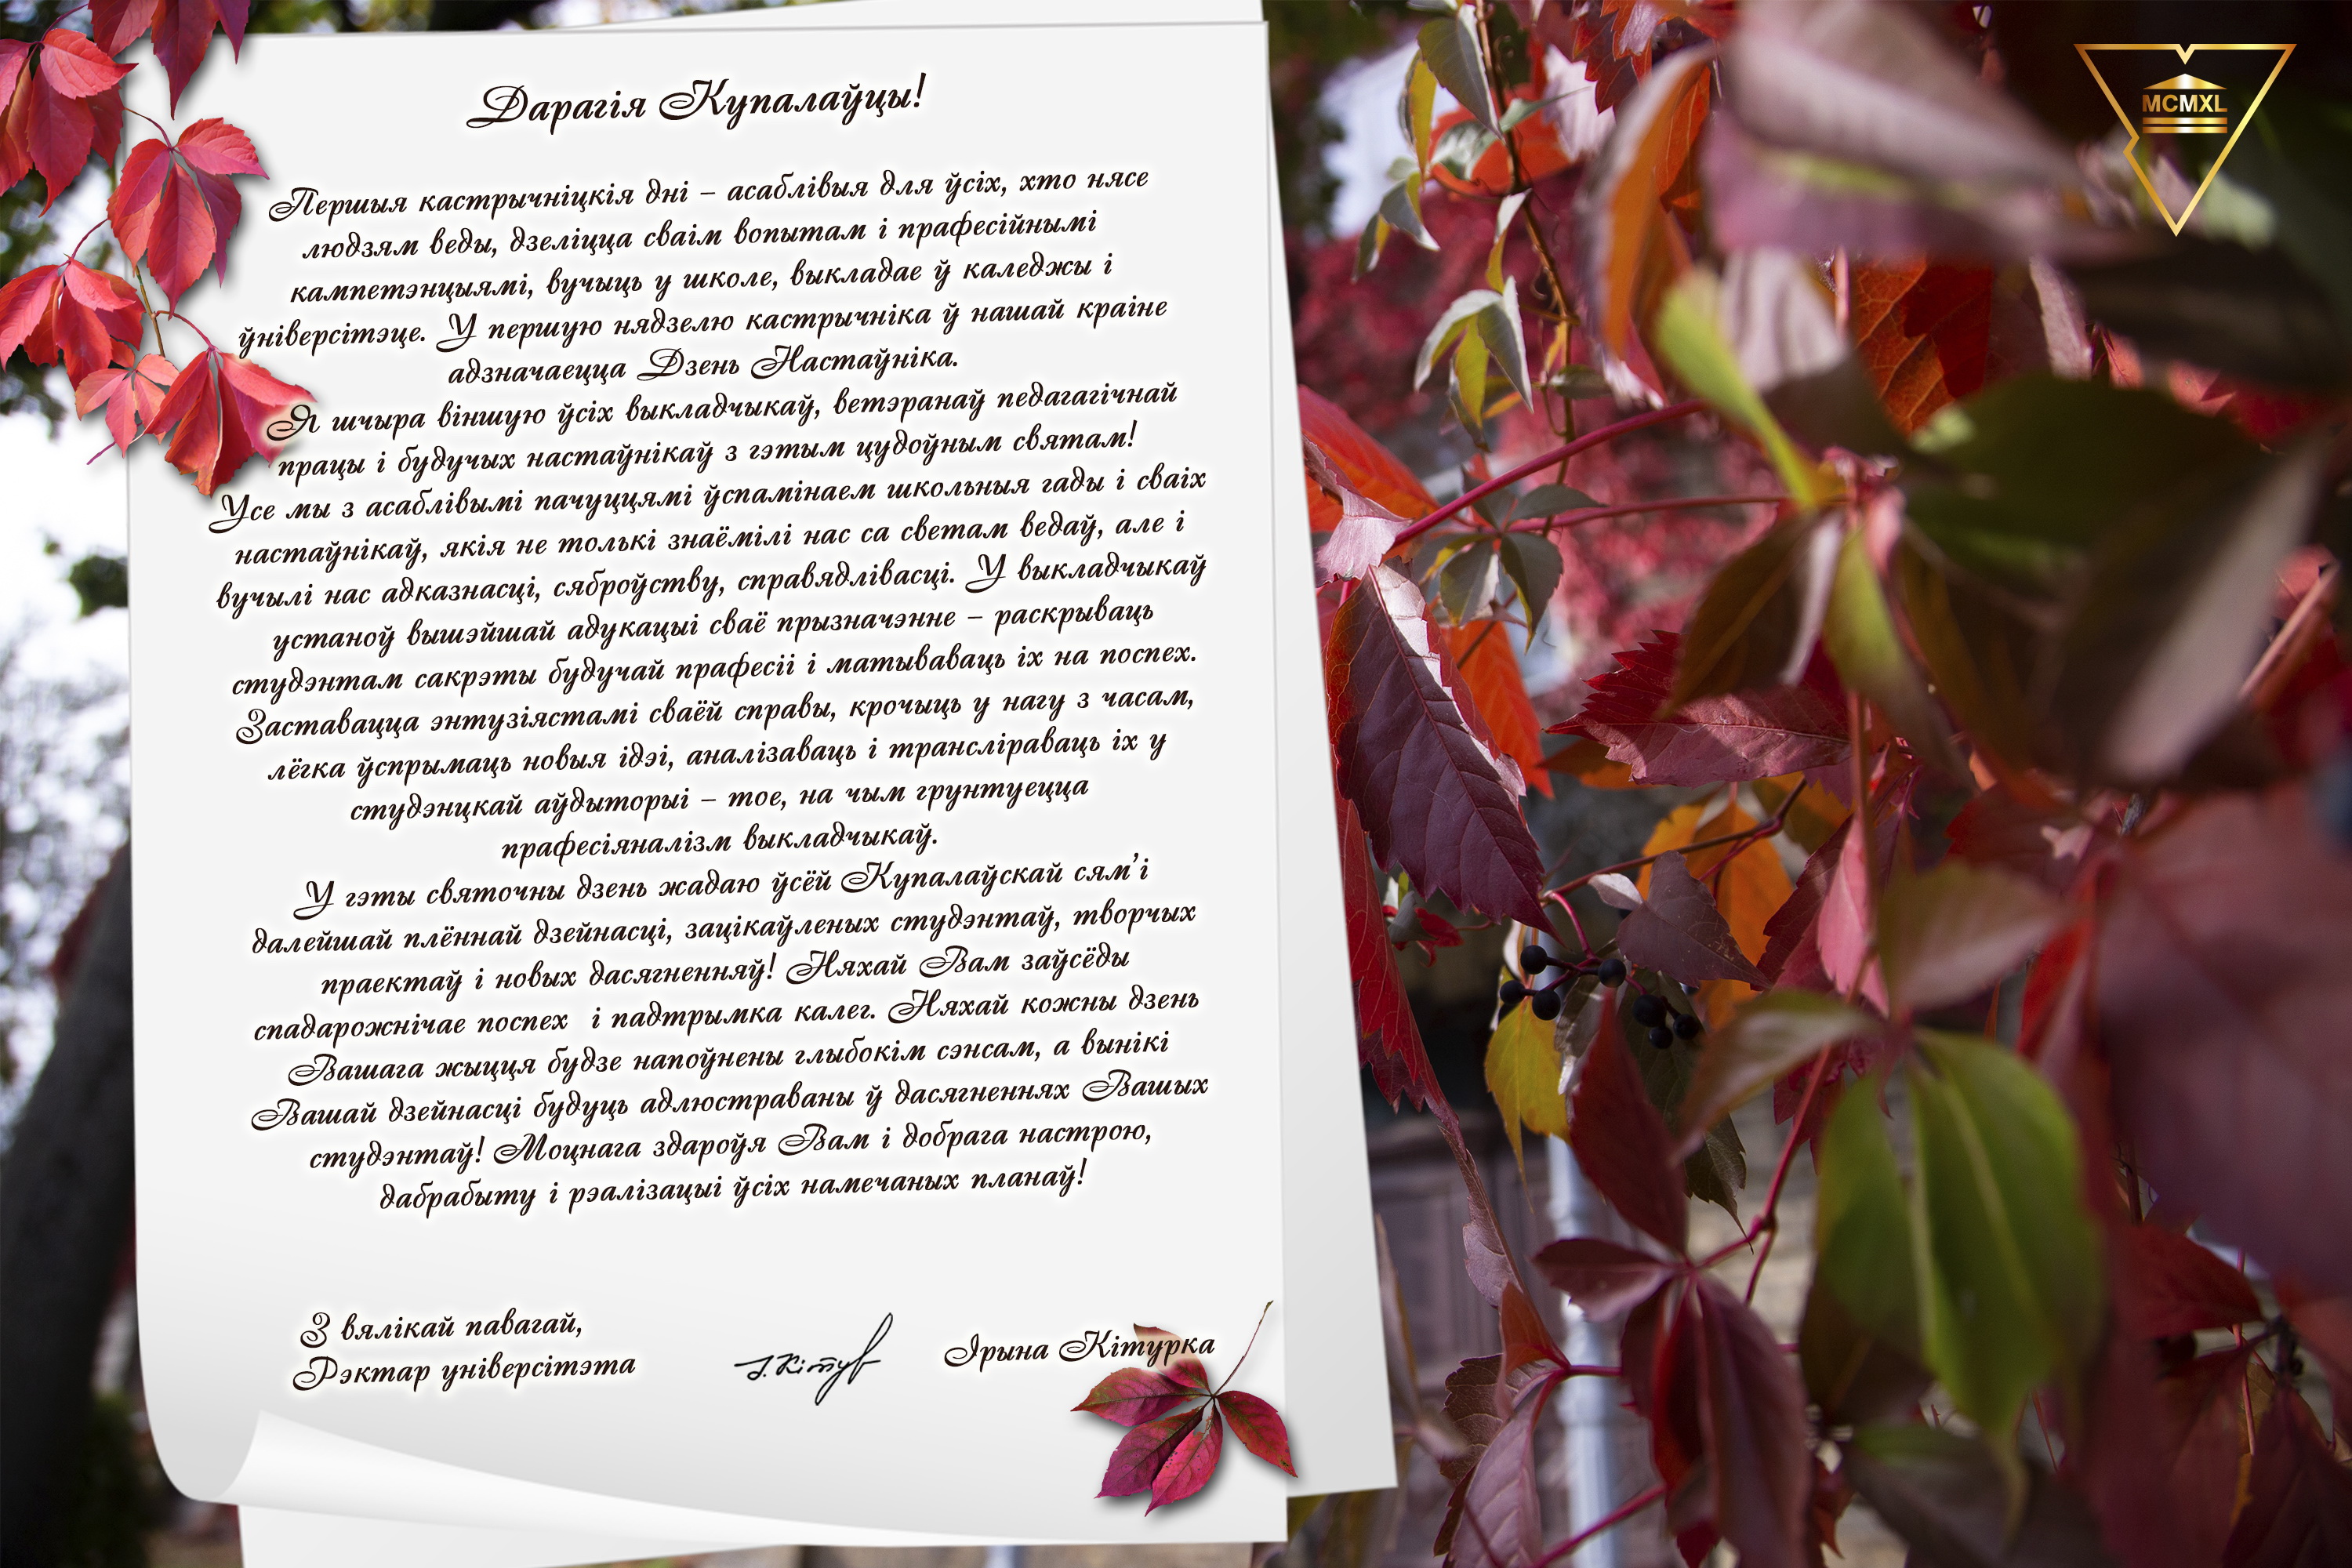 Дарагія Купалаўцы!
Першыя кастрычніцкія дні – асаблівыя для ўсіх, хто нясе
людзям веды, дзеліцца сваім вопытам і прафесійнымі
кампетэнцыямі, вучыць у школе, выкладае ў каледжы і
ўніверсітэце. У першую нядзелю кастрычніка ў нашай краіне
адзначаецца Дзень Настаўніка.
Я шчыра віншую ўсіх выкладчыкаў, ветэранаў педагагічнай
працы і будучых настаўнікаў з гэтым цудоўным святам!
Усе мы з асаблівымі пачуццямі ўспамінаем школьныя гады і сваіх
настаўнікаў, якія не толькі знаёмілі нас са светам ведаў, але і
вучылі нас адказнасці, сяброўству, справядлівасці. У выкладчыкаў
устаноў вышэйшай адукацыі сваё прызначэнне – раскрываць
студэнтам сакрэты будучай прафесіі і матываваць іх на поспех.
Заставацца энтузіястамі сваёй справы, крочыць у нагу з часам,
лёгка ўспрымаць новыя ідэі, аналізаваць і трансліраваць іх у
студэнцкай аўдыторыі – тое, на чым грунтуецца
прафесіяналізм выкладчыкаў.
У гэты святочны дзень жадаю ўсёй Купалаўскай сям'і
далейшай плённай дзейнасці, зацікаўленых студэнтаў, творчых
праектаў і новых дасягненняў! Няхай Вам заўсёды
спадарожнічае поспех і падтрымка калег. Няхай кожны дзень
Вашага жыцця будзе напоўнены глыбокім сэнсам, а вынікі
Вашай дзейнасці будуць адлюстраваны ў дасягненнях Вашых
студэнтаў! Моцнага здароўя Вам і добрага настрою,
дабрабыту і рэалізацыі ўсіх намечаных планаў!
З вялікай павагай,
Рэктар універсітэта
Ірына Кітурка
MCMXL